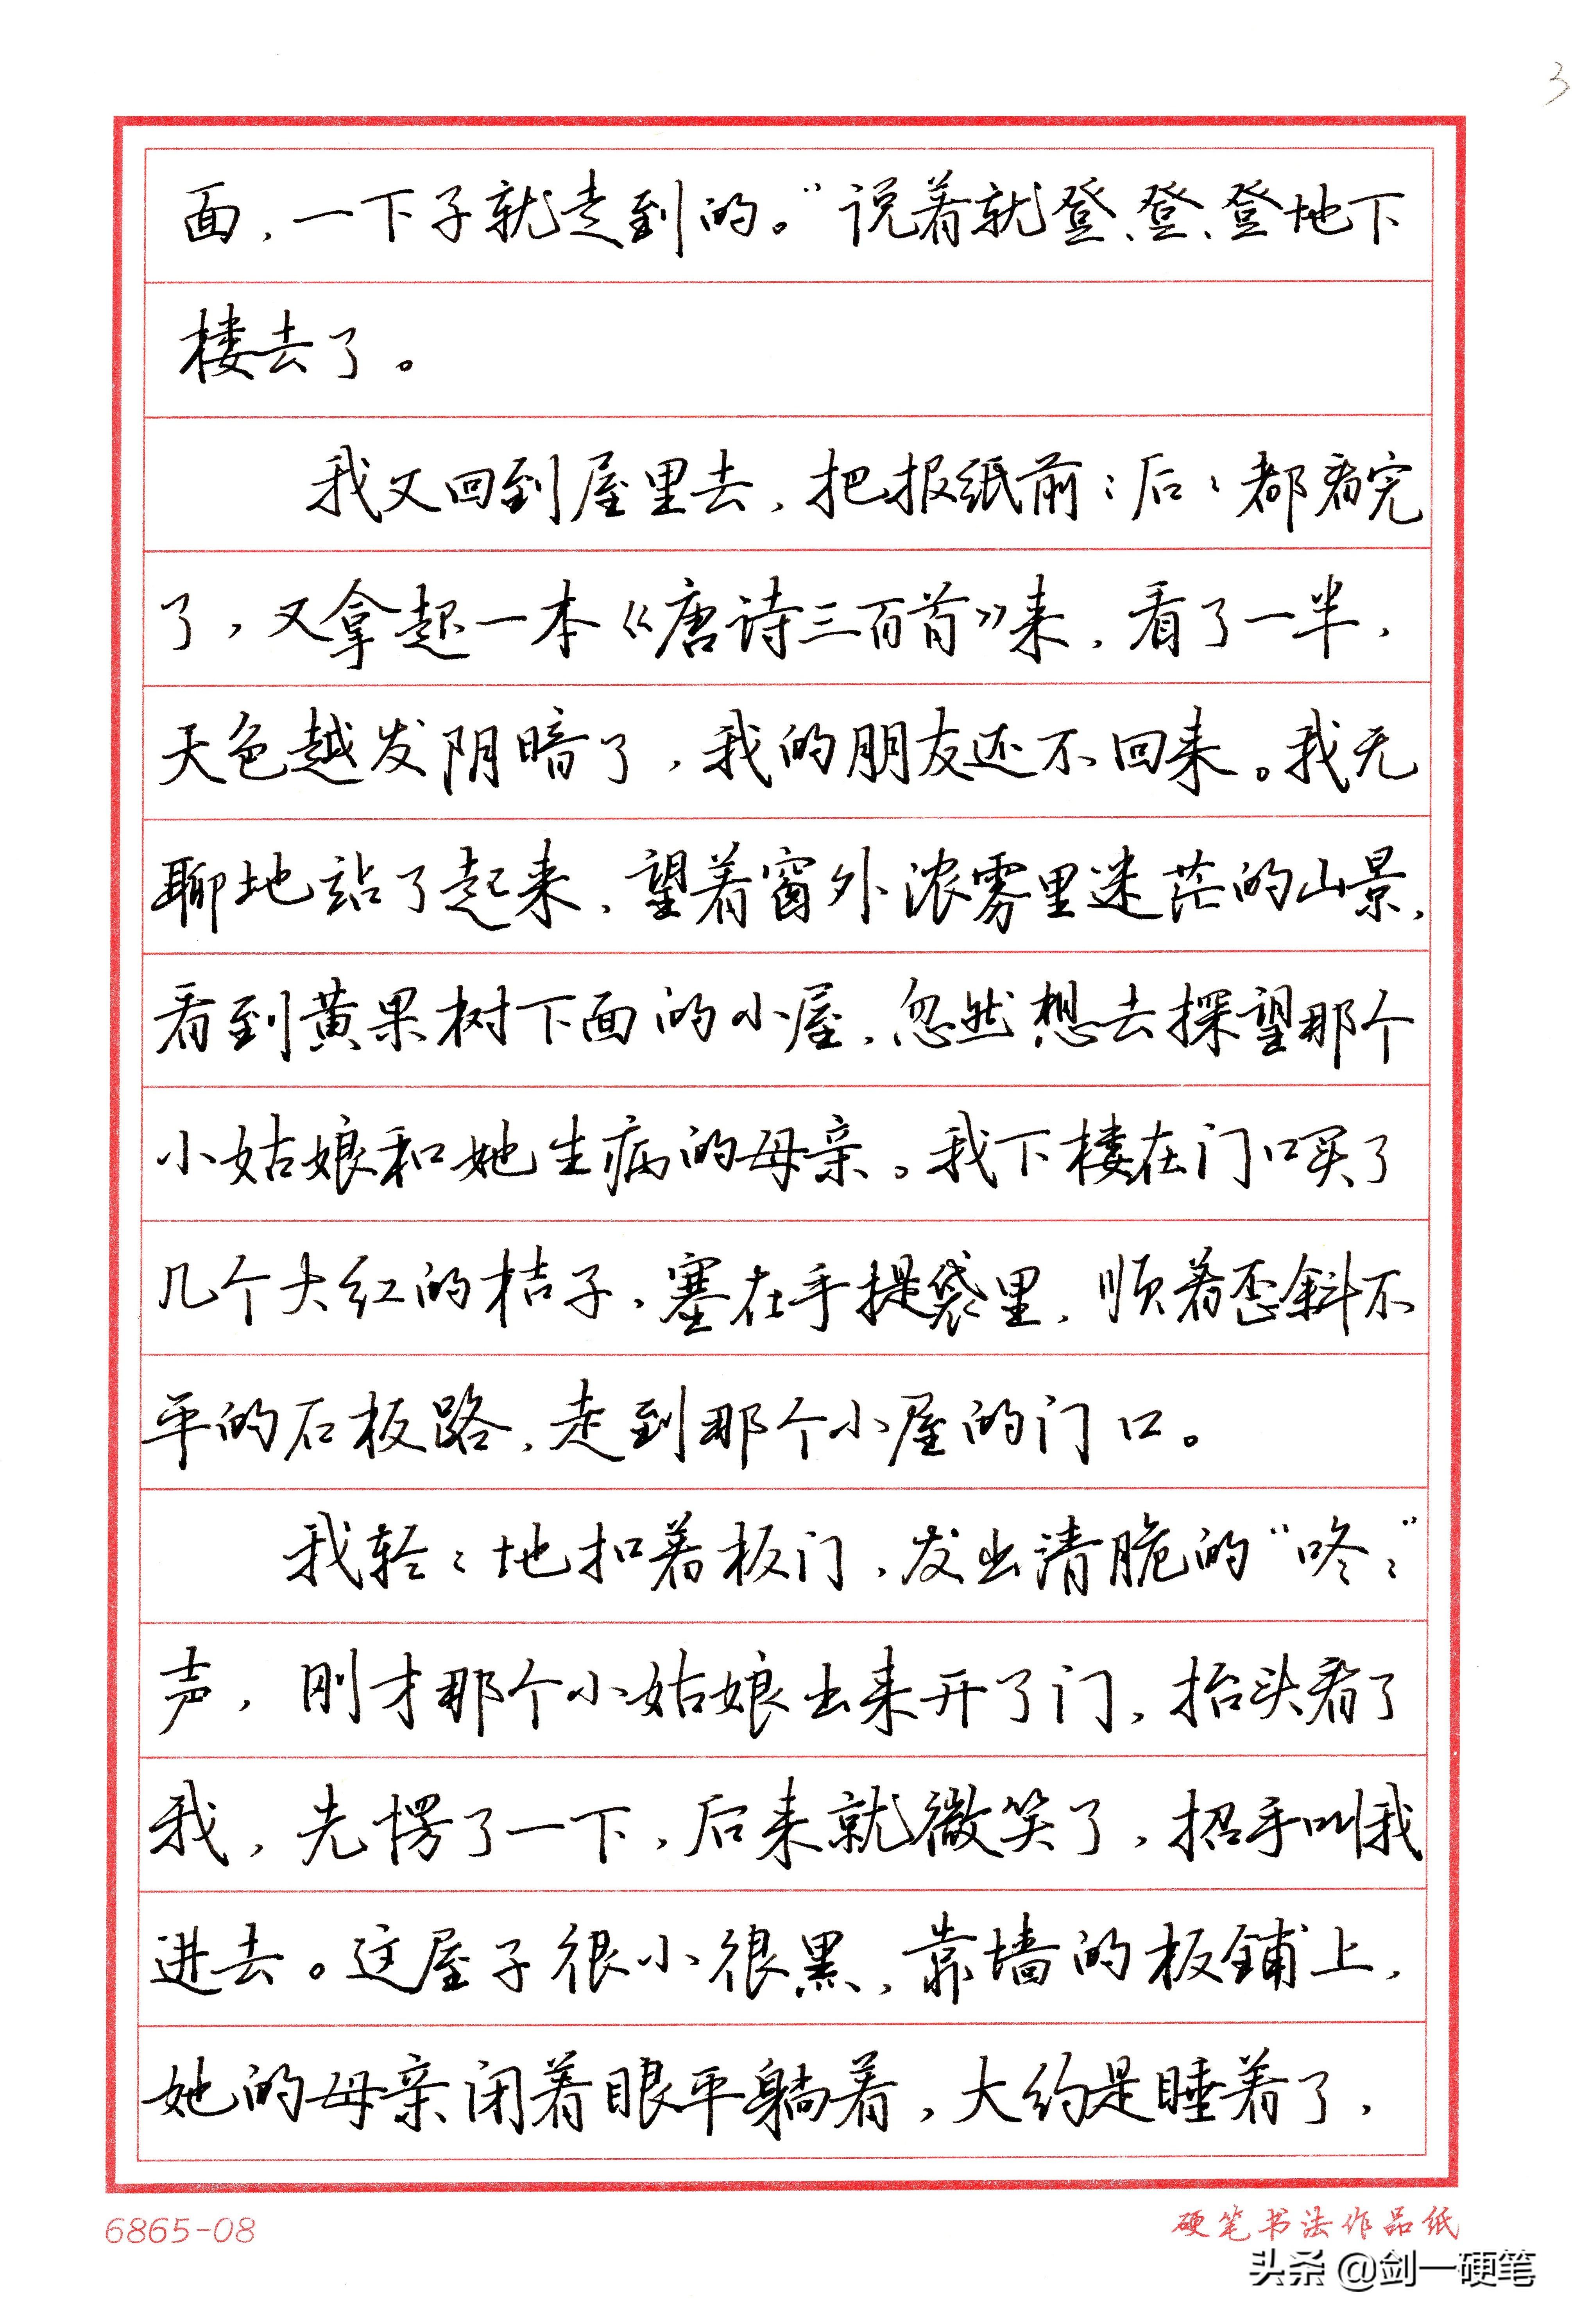 3
面，一下子就走到的。”说着就登、登、登地下
楼去了。
我又回到屋里去，把报纸前︰后︰都看完
了，又拿起一本《唐诗三百首》来，看了一半，
天色越发阴暗了，我的朋友还不回来。我无
聊地站了起来，望着窗外浓雾里迷茫的山景，
看到黄果树下面的小屋，忽然想去探望那个
小姑娘和她生病的母亲。我下楼在门口买了
几个大红的桔子，塞在手提袋里，顺着歪斜不
平的石板路，走到那个小屋的门口。
我轻︰地扣着板门，发出清脆的“咚︰”
声，刚才那个小姑娘出来开了门，抬头看了
我，先愣了一下，后来就微笑了，招手叫我
进去。这屋子很小很黑，靠墙的板铺上，
她的母亲闭着眼平躺着，大约是睡着了，
6865-08
硬笔书法作品纸
头条 @剑一硬笔